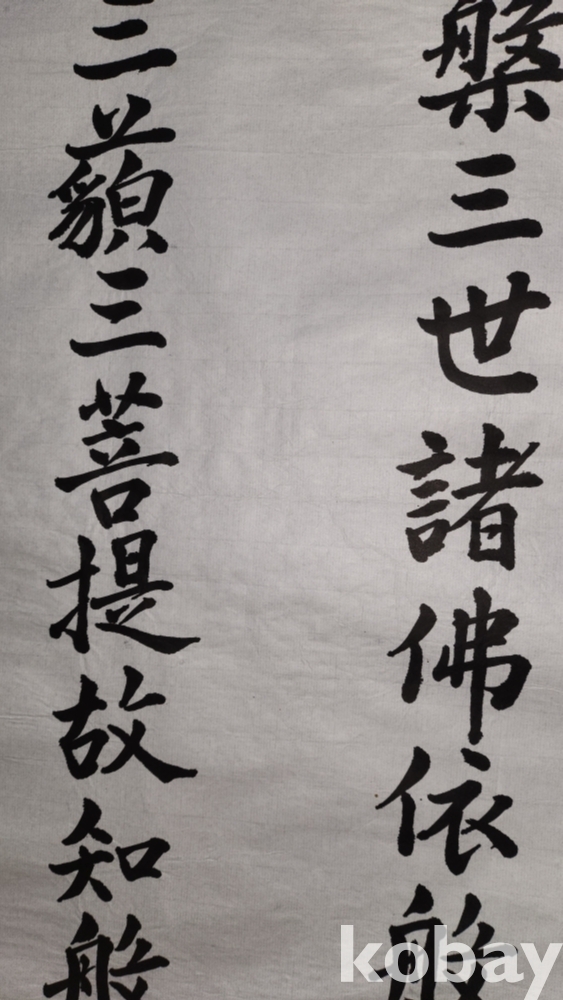 槃三世諸佛依般
三藐三菩提故知般
kobay